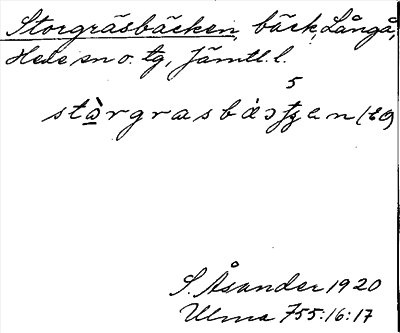 Storgräsbäcken, bäck, Långå,
Hede sn o. tg, Jämtl. l.
5
S. Åsander 1920
Ulma 755:16:17